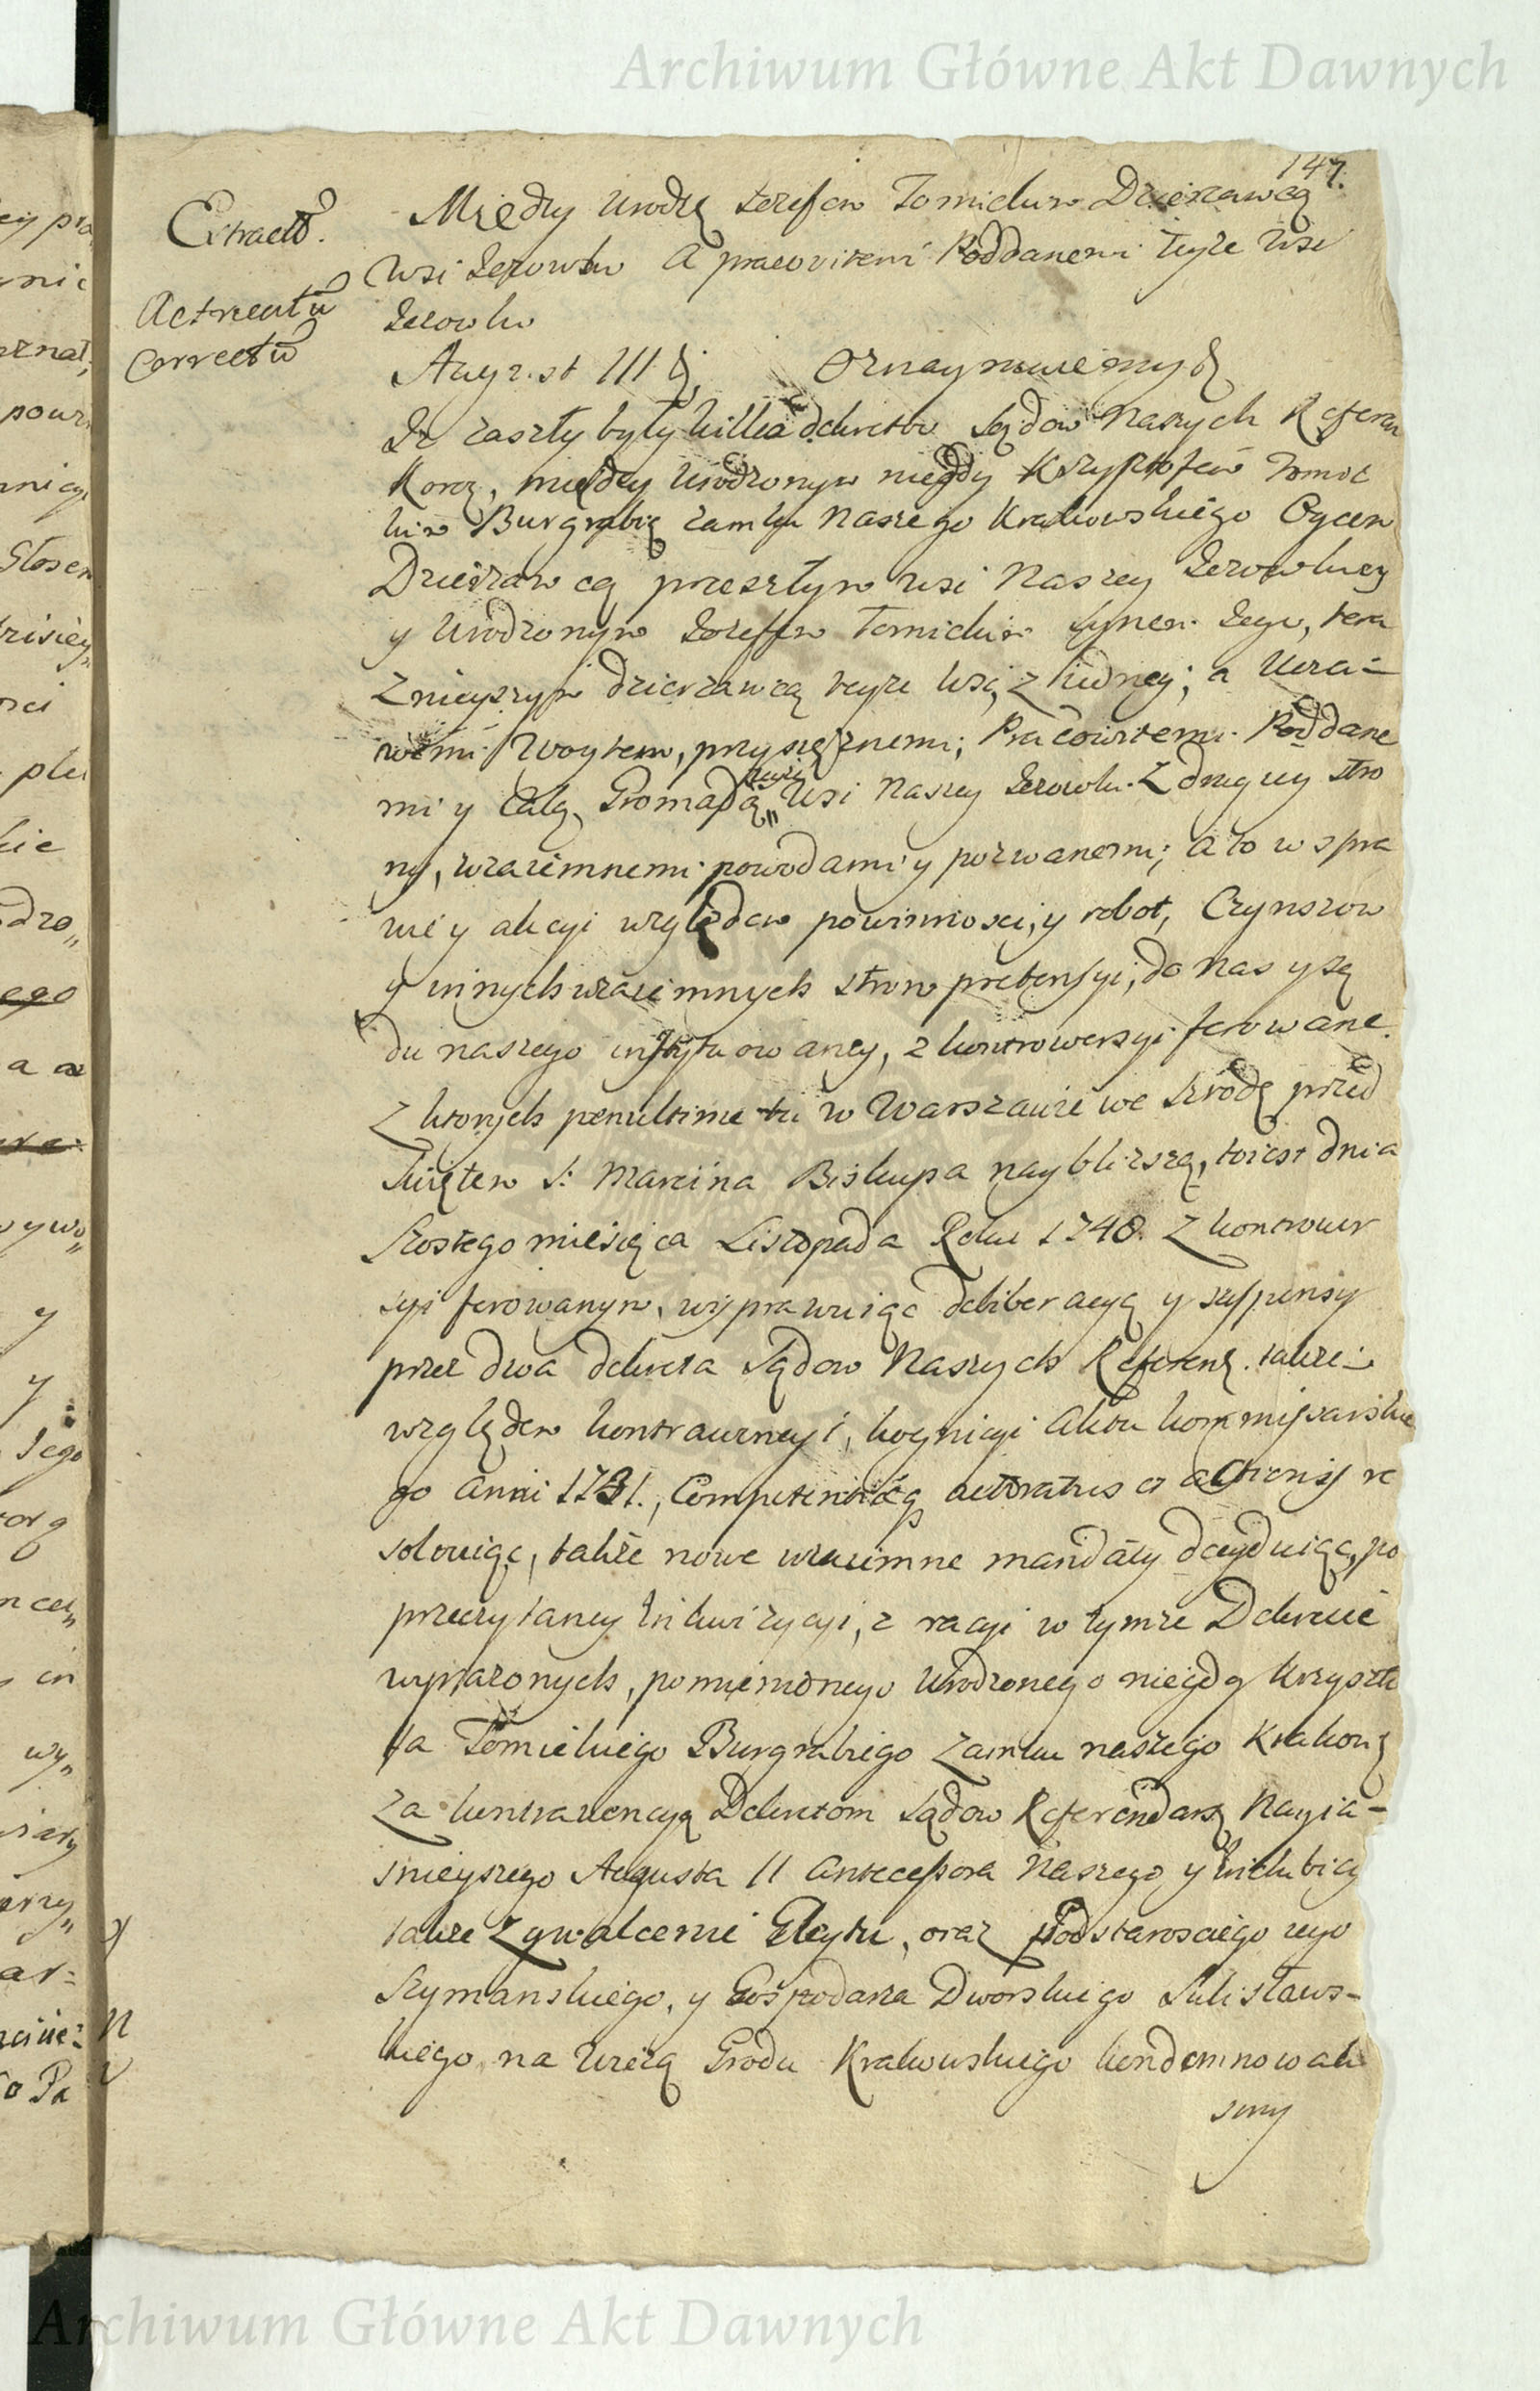 Archiwum Główne Akt Dawnych
147.
Extractũ.
Actricatũ
Correctũ
Między Urodz Jozefem Tomickim Dzierzawcą
Wsi Jezowku A pracowitemi Poddanemi teyże Wsi
Jezowku
August III Oznaymuiemy
Iz zaszły były kilka dekretow Sądow Naszych Referen
Koroꝫ, między Urodzonym niegdy Krzysztofem Tomic
kim Burgrabią Zamku Naszego Krakowskiego Oycem
Dzierzawcą przeszłym wsi Naszey Jezowkuey
y Urodzonym Jozeffem Tomickim Synem Jego, tera
znieyszym dzierzawcą teyze wsi, z iedney; a Uczci-
wemi Woytem, przysięznemi, Pracowitemi Poddane
mi y całą Gromadą teyże Wsi Naszey Jezowku z drugiey stro
ny, wzaiemnemi powodami y pozwanemi; a to w spra
wie y akcyi względem powinnosci, y robot, Czynszow
y innych wzaiemnych stron pretensyi, do Nas y Są
du naszego instytuowaney, z kontrowersyi ferowane.
Z ktorych penultime tu w Warszawie we Szrodę przed
Swiętem S: Marcina Biskupa naybliższą, to iest dnia
Szostego miesiąca Listopada Roku 1748. Z kontrower
syi ferowanym, wyprawuiąc deliberacyą y suspensy
przez dwa dekreta Sądow Naszych Referenꝫ. takze
względem kontrawencyi, kognicyi Aktu kommissarskie
go Anni 1731., Competentią actoratus et actionis re
solwiąc, takze nowe wzaiemne mandaty decyduiąc, po
przeczytaney Inkwizycyi, z racyi w tymże Dekrecie
wyrazonych, pomienionego Urodzonego niegdy Krzyszto
fa Tomickiego Burgrabiego Zamku naszego Krakowꝫ
za kontrawencyą Dekretom Sądow Referendarꝫ Nayia-
snieyszego Augusta II Antecessora Naszego y
takze zgwałcenie Gleytu, oraz Podstarosciego iego
Szymanskiego, y Gospodarza Dworskiego Sulisławs-
kiego na Wieżą Grodu Krakowskiego kondemnowali
smy
Archiwum Główne Akt Dawnych